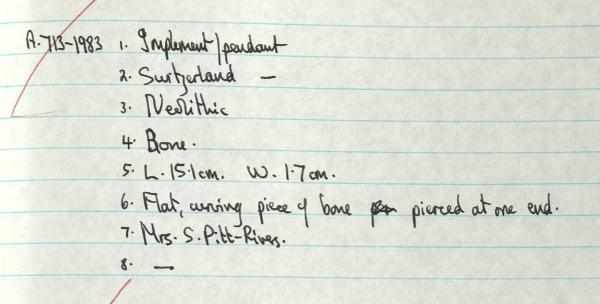 A.713-1983 1. Implement/pendant
2. Switzerland —
3. Neolithic
4. Bone.
5. L. 15.1cm. W. 1.7cm.
6. Flat, curving piece of bone pierced at one end.
7. Mrs. S. Pitt-Rivers.
8. —